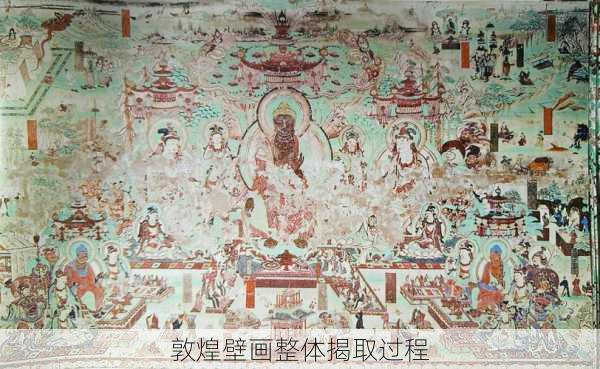 敦煌壁画整体揭取过程